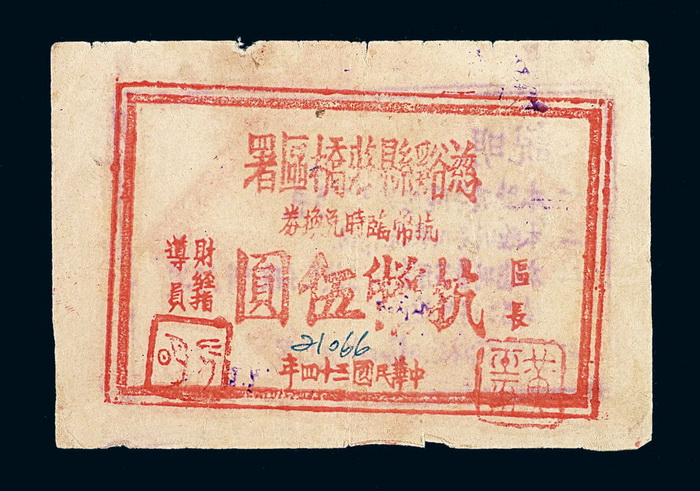 慈谿縣橋區署
抗幣臨時兌換券
區長
抗幣伍圓
財經指導員
21066
中華民國三十四年
說明